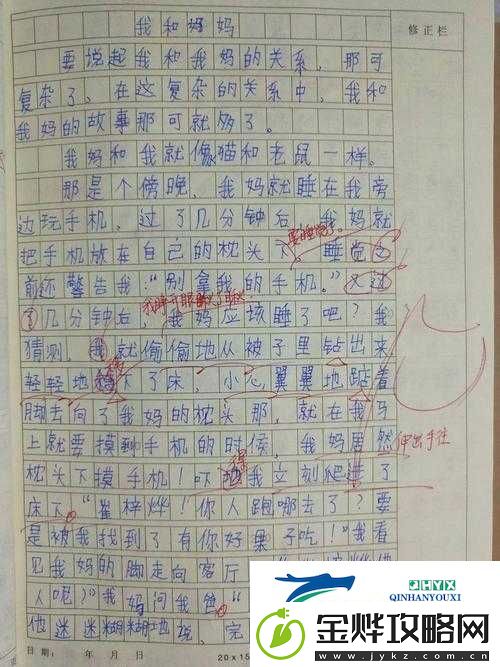 我和妈妈
修正栏
要说起我和我妈的关系，那可
复杂了，在这复杂的关系中，我和
我妈的故事那可就多了。
我妈和我就像猫和老鼠一样。
那是个傍晚，我妈就睡在我旁
边玩手机，过了几分钟后，我妈就
要睡觉了
把手机放在自己的枕头下，睡觉
前还警告我："别拿我的手机。"又过
了几分钟后，我妈应该睡了吧？我
猜测，我就偷偷地从被子里钻出来
轻轻地下了床，小心翼翼地踮着
脚去向了我妈的枕头那，就在我马
上就要摸到手机的时候，我妈居然
伸出手往
枕头下摸手机！吓我立刻爬进了
床下。"崔梓烨！你人跑哪去了？要
是被我找到了有你好果子吃！"我看
见我妈的脚走向客厅
人呢？"我妈问我爸。
他迷迷糊糊地说，完
日期： 年 月 日
20×15
QHYX
QINHANYOUXI
金烨攻略网
www.jykz.com.cn